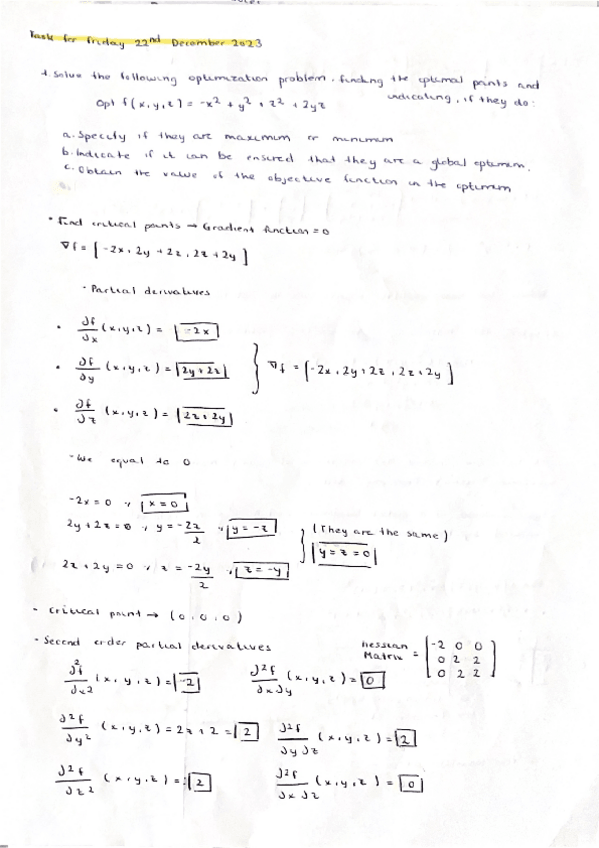 Task for friday 22nd December 2023
1. Solve the following optimization problem, finding the optimal points and
indicating, if they do:
Opt f(x,y,z) = -x² + y² + z² + 2yz
a. Specify if they are maximum or minimum
b. Indicate if it can be ensured that they are a global optimum.
c. Obtain the value of the objective function in the optimum
• Find critical points → Gradient function = 0
∇f = [-2x, 2y + 2z, 2z + 2y]
- Partial derivatives
• ∂f/∂x (x,y,z) = -2x
• ∂f/∂y (x,y,z) = 2y+2z } ∇f = [-2x, 2y+2z, 2z+2y]
• ∂f/∂z (x,y,z) = 2z+2y
- We equal to 0
-2x = 0 ; x = 0
2y + 2z = 0 ; y = -2z/2 ; y = -z } (They are the same)
y = z = 0
2z + 2y = 0 ; z = -2y/2 ; z = -y
- Critical point → (0,0,0)
- Second order partial derivatives
Hessian Matrix = [-2 0 0
0 2 2
0 2 2]
∂²f/∂x² (x,y,z) = -2 ∂²f/∂x∂y (x,y,z) = 0
∂²f/∂y² (x,y,z) = 2z+2 = 2 ∂²f/∂y∂z (x,y,z) = 2
∂²f/∂z² (x,y,z) = 2 ∂²f/∂x∂z (x,y,z) = 0